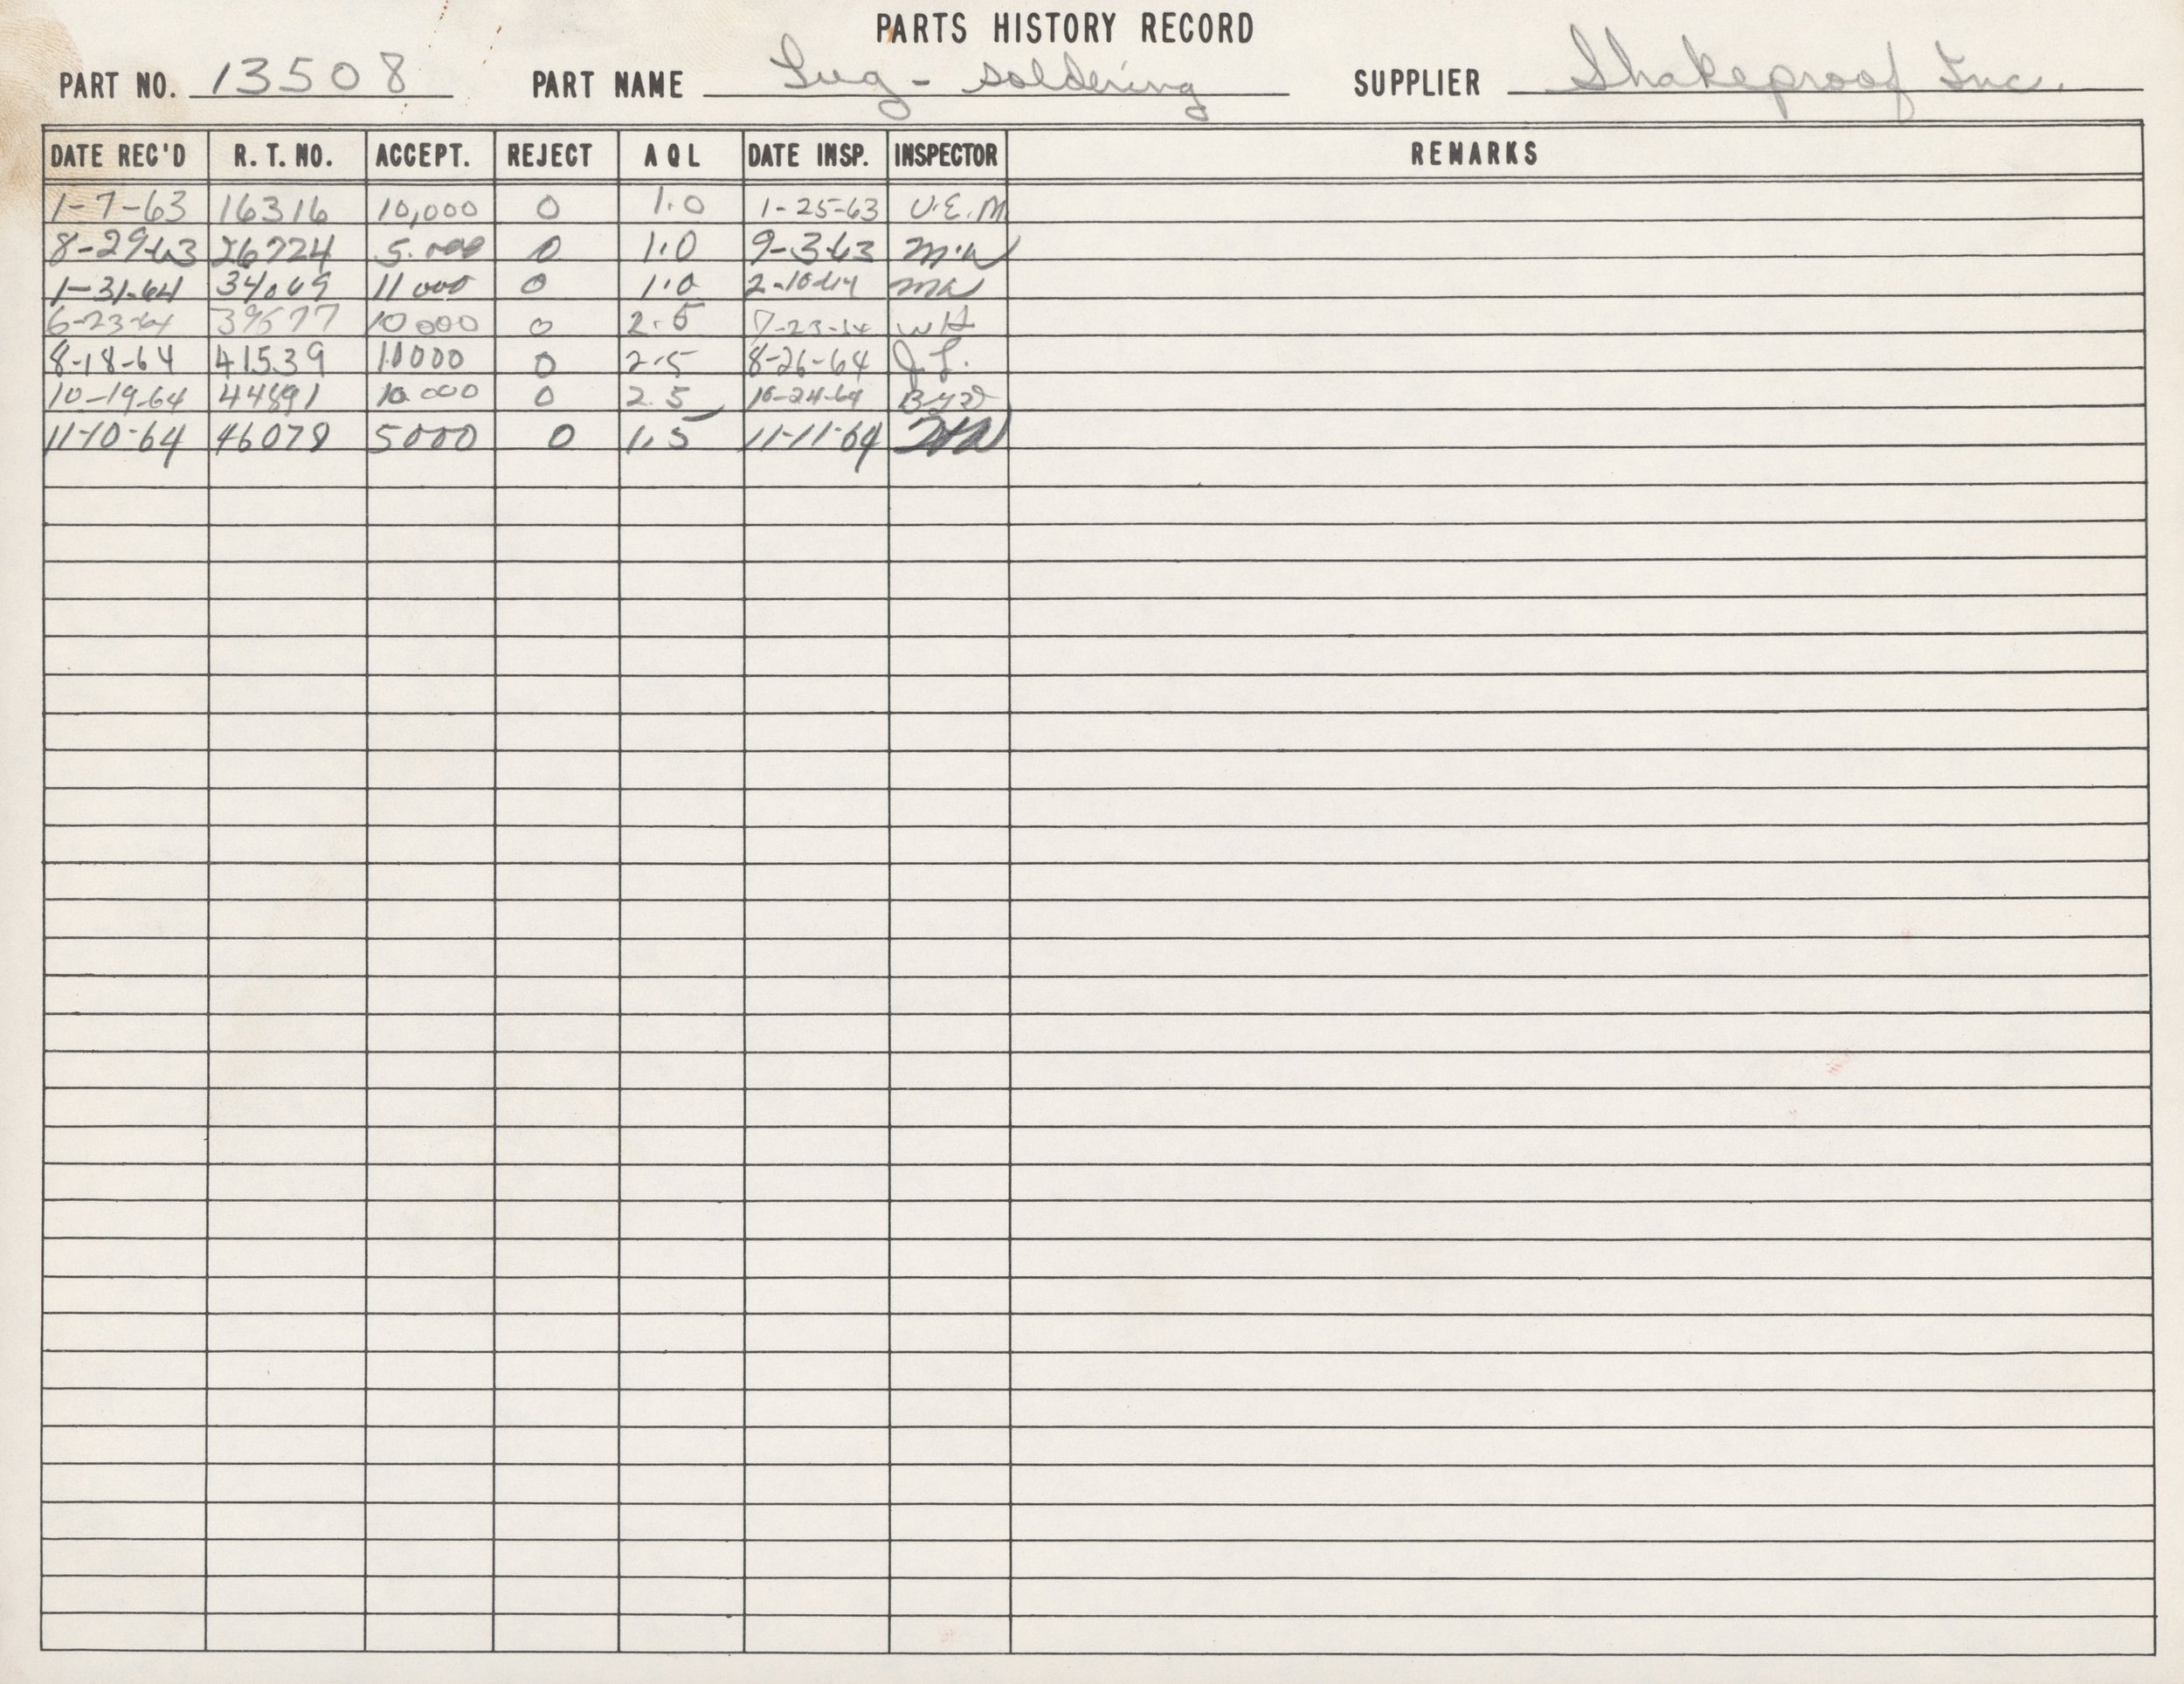 PARTS HISTORY RECORD
PART NO. 13508 PART NAME Lug - soldering SUPPLIER Shakeproof Inc.
DATE REC'D R. T. NO. ACCEPT. REJECT AQL DATE INSP. INSPECTOR REMARKS
1-7-63 16316 10,000 0 1.0 1-25-63 V.E.M
8-29-63 26724 5.000 0 1.0 9-3-63
1-31-64 34069 11000 0 1.0 2-10-64
6-23-64 39677 10000 0 2.5 7-23-64 WH
8-18-64 41539 10000 0 2.5 8-26-64 J.L.
10-19-64 44891 10.000 0 2.5 10-24-64
11-10-64 46078 5000 0 1.5 11-11-64